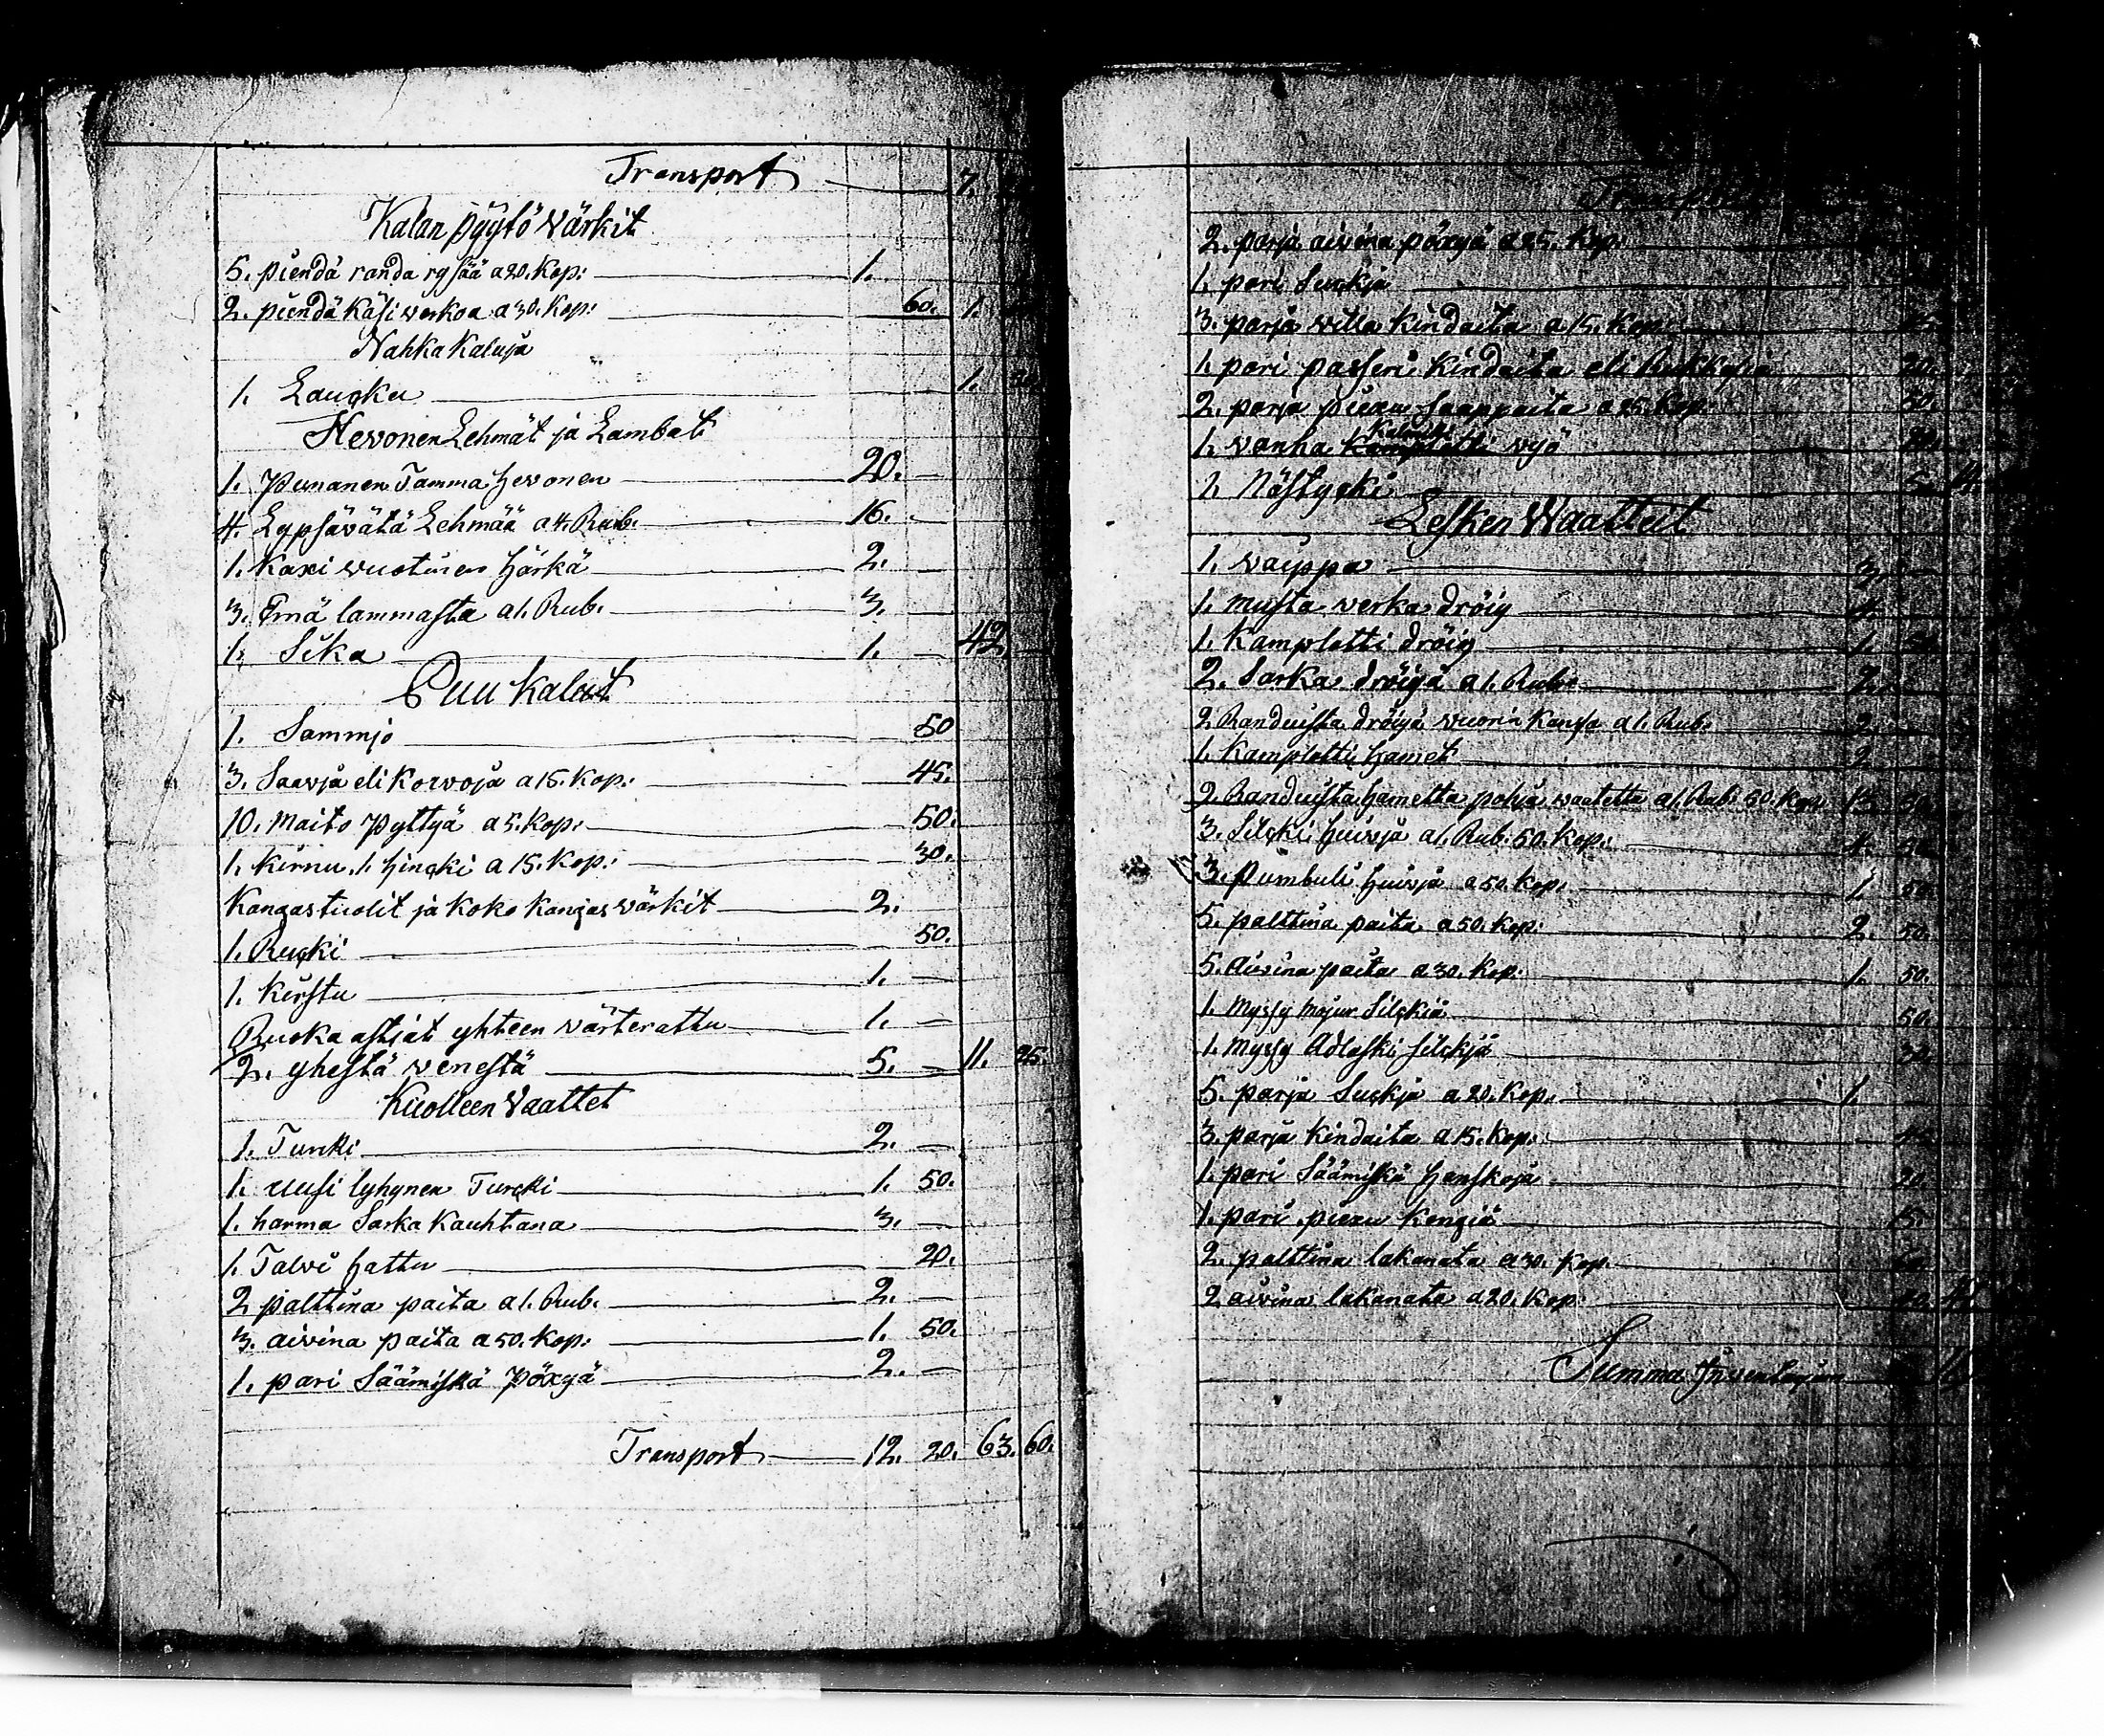 Transport 7.
Kalan pyytö Wärkit
5. piendä randa rysää a 20. Kop: 1.
2. piendä Käsi verkoa a 30. Kop: 60. 1.
Nahka Kaluja
1. Laucku 1.
Hevonen Lehmät ja Lambat
1. Punanen Tamma hevonen 20. —
4. Lypsävätä Lehmää a 4. Rub. 16. —
1. Kaxi wuotinen härkä 2. —
3. Emä lammasta a 1. Rub. 3. —
1. Sika 1. — 42 —
Puu Kalut
1. Sammjo 50
3. Saavja eli Korvoja a 15. Kop. 45.
10. Maito Pyttyä a 5. Kop: 50.
1. Kirnu. 1. hincki a 15. Kop: 30.
Kangastuolit ja koko kangas wärkit 2.
1. Rucki 50.
1. Kirstu 1. —
Ruoka astiat yhteen wärterattu 1. —
2. yhestä venestä 5. — 11. 25.
Kuolleen Vaattet
1. Turcki 2. —
1. uusi lyhynen Turcki 1. 50.
1. harma Sarka Kauhtana 3. —
1. Talvi hattu 20.
2 palttina paita a 1. Rub. 2. —
3. aivina paita a 50. Kop: 1. 50.
1. pari Säämiskä Pöxyä 2. —
Transport 12. 20. 63. 60.
2. parja aivina pöxyä a 25. Kop:
1. pari Suckja
3. parja villa Kindaita a 15. Kop:
1. pari Kindaita eli Rukkasia 20.
2. parja piexu Saappaita a 25. Kop: 50.
1. vanha vyö
1. Nöstycki
Lesken Waatteit
1. vaippa 3. —
1. musta verka dröig 4.
1. Kamplotti dröig 1. 50.
2. Sarka dröigä a 1. Rub. 2. —
2 Randuista dröigä vuorin Kansa a 1. Rub. 2.
1. Kamplotti hamet 2
2. Randuista hametta pohja vaatetta a 1. Rub. 50. Kop. 3.
3. Silcki huivja a 1. Rub. 50. Kop: 4. 50.
3. Pumbuli huivja a 50. Kop: 1. 50.
5. palttina paita a 50. Kop: 2. 50.
5. Aivina paita a 30. Kop. 1. 50.
1. Myssy Silckiä 50.
1. Myssy Adlaski Silckjä
5. parja Suckja a 20. Kop. 1.
3. parja Kindaita a 15. Kop: 45.
1. pari Säämiskä hanskoja 20.
1. pari piexu Kengiä 15.
2. palttina lakanata a 30. Kop. 60.
2 aivina lakanata a 20. Kop. 40.
Summa Inventarium